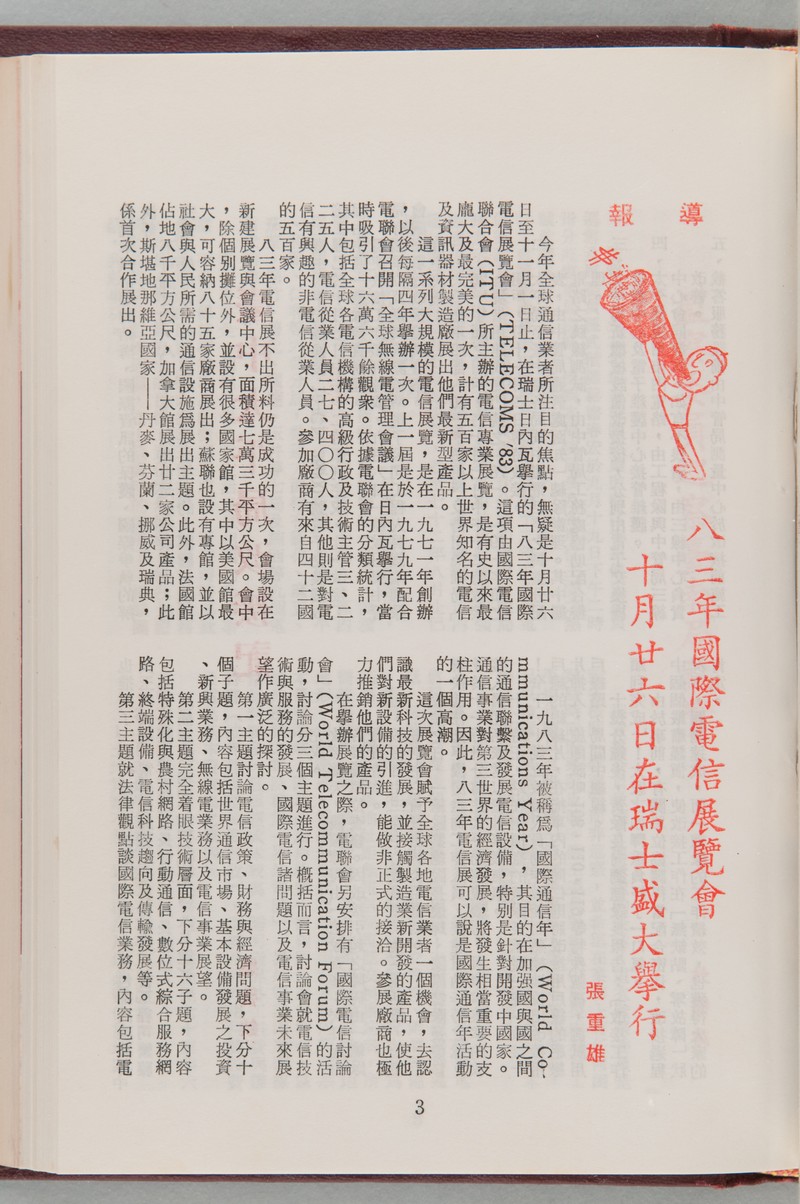 導報
八三年國際電信展覽會
十月廿六日在瑞士盛大舉行
張重雄
今年全球通信業者所注目的焦點，無疑是十月廿六
日至十一月一日止，在瑞士日內瓦舉行的「八三年國際
電信展覽會」（TELECOMS '83）。這項由國際電信
聯合會（ITU）所主辦的電信專業展覽，是有史以來最
龐大及最完美的一次，計有五百家以上世界知名的電信
及資訊器材製造廠展出他們最新型產品。
這一系列大規模的電信展覽，是在一九七一年創辦
，以後每隔四年舉辦一次。上一屆是於一九七九年配合
電聯會召開「全球無線電管理會議」在日內瓦舉行，當
時吸引了十六萬六千餘觀衆。依據電聯會的分類統計，
其中包括全球各電信機構的高級行政及技術主管三、二
二五人，電信從業人員二七、四〇〇人，其他則是對電
信有興趣的非電信從業人員。參加廠商有來自四十二國
的五百家。
八三年電信展不出所料仍是成功的一次，會場設在
新建展覽與會議中心，面積達七萬三千平方公尺。會中
，除個別攤位外，並設有很多國家館，其中以美國館最
大，可容納八十五家廠商展出；蘇聯也設有專館，並以
社會與人民所需的通信設施爲展出主題。此外，法國館
佔地八千平方公尺，加拿大館展出廿二家公司產品；此
外，斯堪地那維亞國家——丹麥、芬蘭、挪威及瑞典，
係首次合作展出。
一九八三年被稱爲「國際通信年」（World Co-
mmunications Year），其目的在加強國與國之間
的通信聯繫及發展電信設備，特別是針對開發中國家。
通信事業對第三世界的經濟發展，將發生相當重要的支
柱作用。因此，八三年電信展可以說是國際通信年活動
的一個高潮。
這次展覽會賦予全球各地電信業者一個機會，去認
識最新科技的發展，並接觸製造業新開發的產品，使他
們對新設備的引進，能做非正式的接洽。參展廠商也極
力推銷他們的產品。
在舉辦展覽之際，電聯會另安排有「國際電信討論
會」（World Telecommunication Forum）的活
動，討論分三個主題進行。概括而言，討論會就電信技
術與服務的發展、國際電信諸問題以及電信事業未來展
望作廣泛的探討。
第一主題討論電信政策、財務與經濟問題，下分十
個子題，內容包括世界通信市場、基本設備發展之投資
、新興業務、無線電業務以及電信事業展望。
第二主題完全着眼技術層面，下分十六子題，內容
包括特殊化與農村網路、行動通信、數位式綜合服務網
路、終端設備、電信科技趨向及傳輸發展等。
第三主題就法律觀點談國際電信業務，內容包括電
3